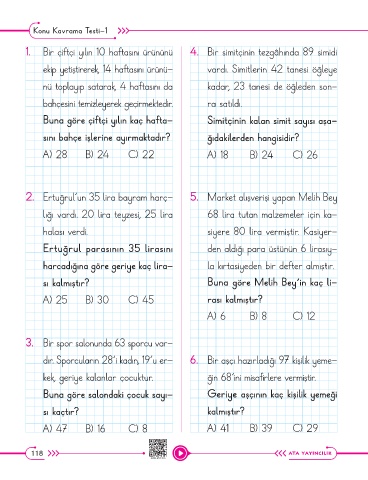 Konu Kavrama Testi-1
1. Bir çiftçi yılın 10 haftasını ürününü
ekip yetiştirerek, 14 haftasını ürünü-
nü toplayıp satarak, 4 haftasını da
bahçesini temizleyerek geçirmektedir.
Buna göre çiftçi yılın kaç hafta-
sını bahçe işlerine ayırmaktadır?
A) 28 B) 24 C) 22
2. Ertuğrul'un 35 lira bayram harç-
lığı vardı. 20 lira teyzesi, 25 lira
halası verdi.
Ertuğrul parasının 35 lirasını
harcadığına göre geriye kaç lira-
sı kalmıştır?
A) 25 B) 30 C) 45
3. Bir spor salonunda 63 sporcu var-
dır. Sporcuların 28'i kadın, 19'u er-
kek, geriye kalanlar çocuktur.
Buna göre salondaki çocuk sayı-
sı kaçtır?
A) 47 B) 16 C) 8
4. Bir simitçinin tezgâhında 89 simidi
vardı. Simitlerin 42 tanesi öğleye
kadar, 23 tanesi de öğleden son-
ra satıldı.
Simitçinin kalan simit sayısı aşa-
ğıdakilerden hangisidir?
A) 18 B) 24 C) 26
5. Market alışverişi yapan Melih Bey
68 lira tutan malzemeler için ka-
siyere 80 lira vermiştir. Kasiyer-
den aldığı para üstünün 6 lirasıy-
la kırtasiyeden bir defter almıştır.
Buna göre Melih Bey'in kaç li-
rası kalmıştır?
A) 6 B) 8 C) 12
6. Bir aşçı hazırladığı 97 kişilik yeme-
ğin 68'ini misafirlere vermiştir.
Geriye aşçının kaç kişilik yemeği
kalmıştır?
A) 41 B) 39 C) 29
118
ATA YAYINCILIK